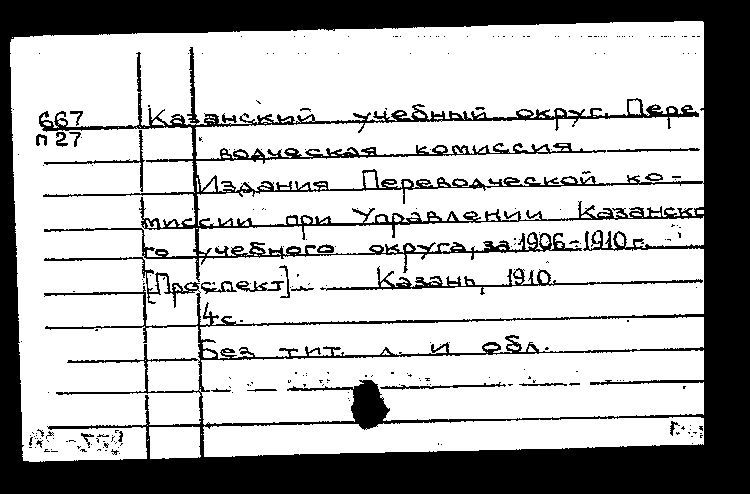 667 Казанский учебный округ. Пере-
п 27
водческая комиссия.
Издания Переводческой ко-
миссии при Управлении Казанско
го учебного округа, за 1906-1910 г.
[Проспект]. Казань, 1910.
4 с.
Без тит. л. и обл.